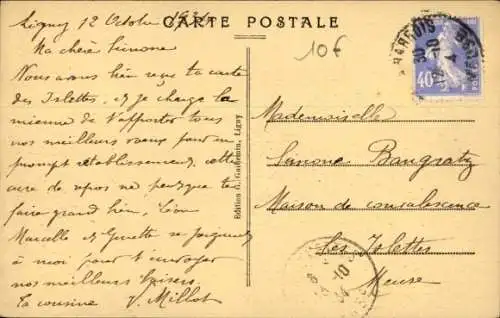 CARTE POSTALE
10€
Ligny 12 Octobre 1934
Ma chère Simone
Nous avons bien reçu ta carte
des Islettes et je charge la
mienne de t'apporter tous
nos meilleurs vœux pour un
prompt rétablissement, cette
cure de repos ne peut que te
faire grand bien, Léon
Marcelle et Ginette se joignent
à moi pour t'envoyer
nos meilleurs baisers
ta cousine V. Millot
Edition G. Gaudemin, Ligny
40
Mademoiselle
Simone Bangratz
Maison de convalescence
Les Islettes
Meuse